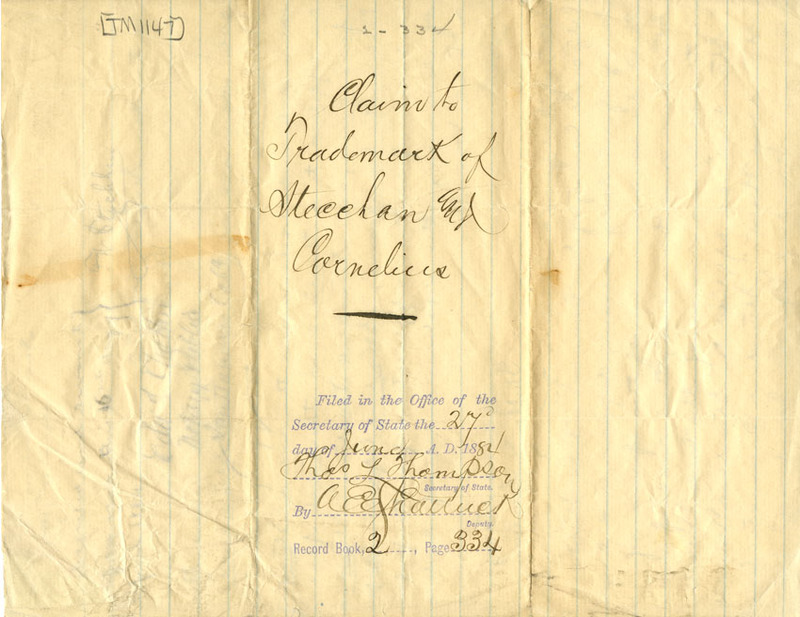 [TM1147]
2 - 334
Claim to
Trademark of
Steechan and
Cornelius
Filed in the Office of the
Secretary of State the 27d
day of June A. D. 1884
Thos L Thompson
Secretary of State.
By A E
Deputy.
Record Book, 2, Page 334